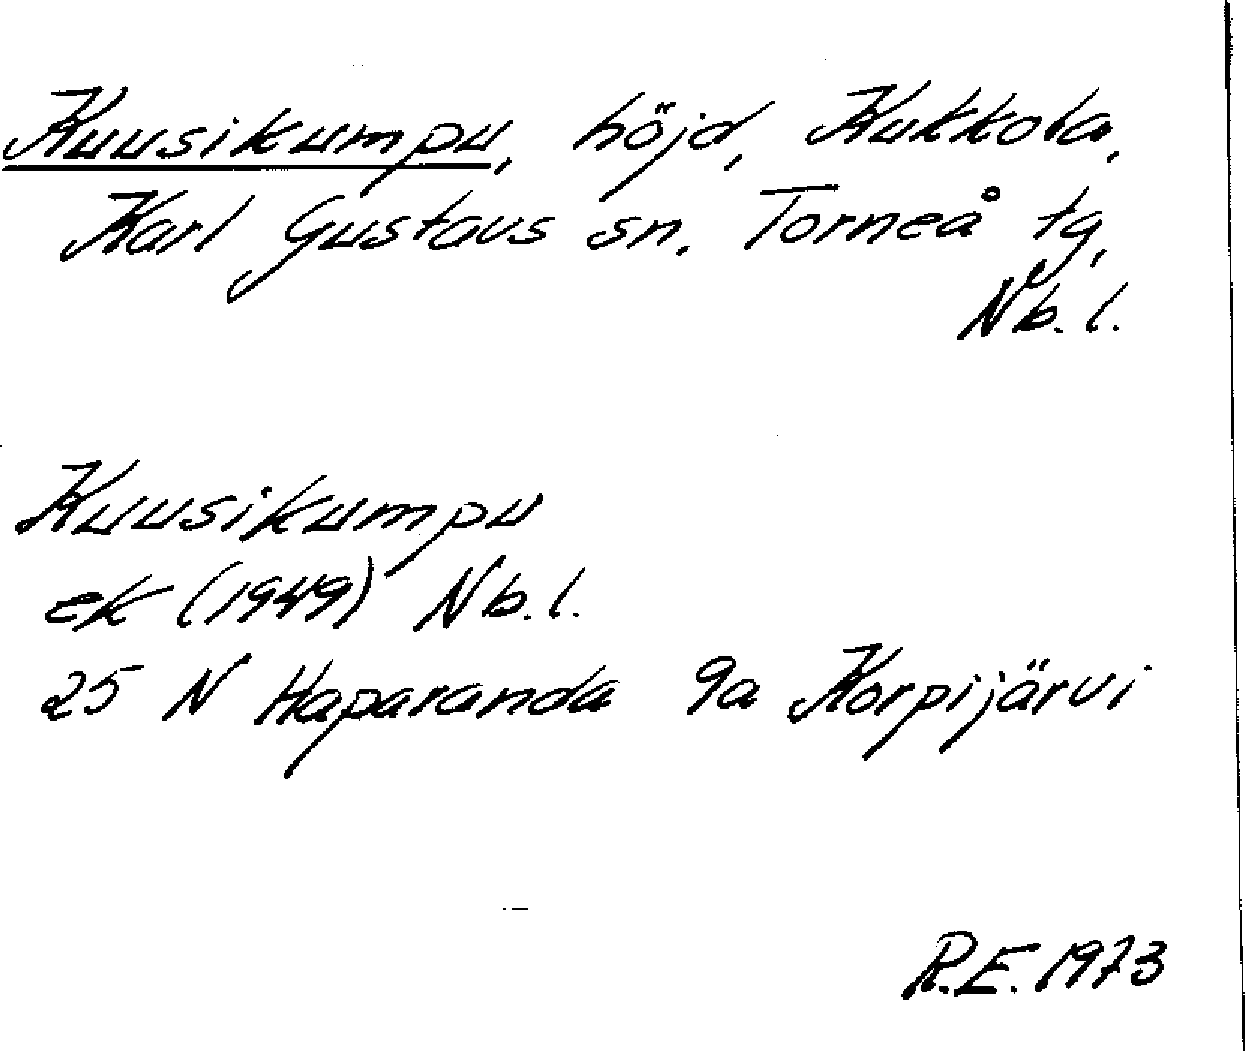 Kuusikumpu, höjd, Kukkola,
Karl Gustavs sn. Torneå tg,
Nb. l.
Kuusikumpu
ek (1949) Nb. l.
25 N Haparanda 9a Korpijärvi
R.E. 1973